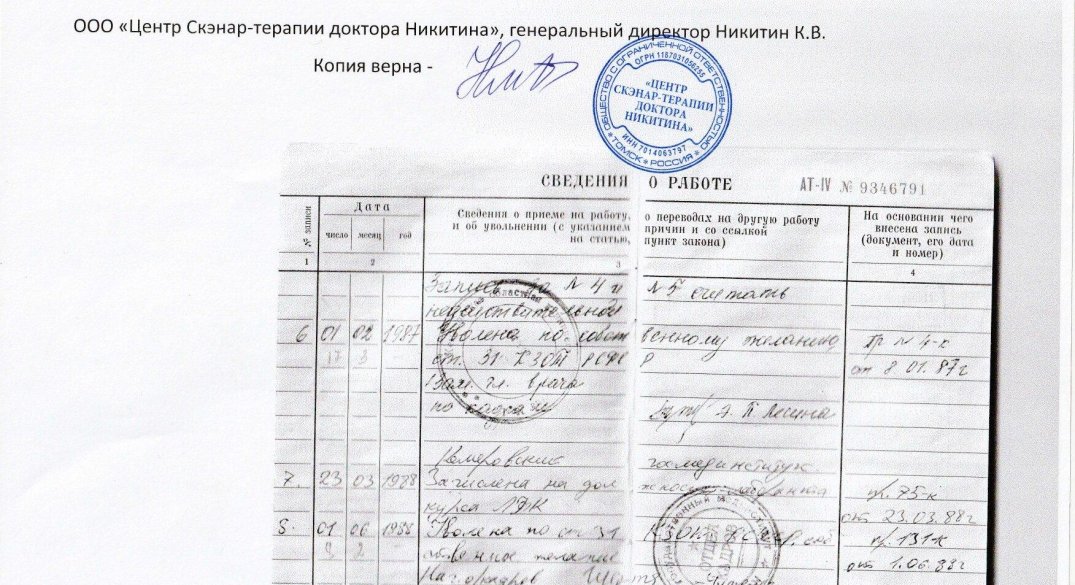 ООО «Центр Скэнар-терапии доктора Никитина», генеральный директор Никитин К.В.
Копия верна -
ОБЩЕСТВО С ОГРАНИЧЕННОЙ ОТВЕТСТВЕННОСТЬЮ
ОГРН 1187031056255
«ЦЕНТР
СКЭНАР-ТЕРАПИИ
ДОКТОРА
НИКИТИНА»
ИНН 7014063797
* ТОМСК * РОССИЯ *
СВЕДЕНИЯ О РАБОТЕ АТ-IV № 9346791
№ записи
Дата
число месяц год
Сведения о приеме на работу, о переводах на другую работу
и об увольнении (с указанием причин и со ссылкой
на статью, пункт закона)
На основании чего
внесена запись
(документ, его дата
и номер)
1 2 3 4
Запись за № 4 и № 5 считать
недействительной
6 01 02 1987 Уволена по собственному желанию Пр № 4-к
ст. 31 КЗОТ РСФСР от 8 01. 87г
Зам. гл. врача
по кадрам
Кемеровский госмединститут
7. 23 03 1988 Зачислена на должность лаборанта пр. 75-к
курса ЛФК от 23.03.88г
8. 01 06 1988 Уволена по ст 31 КЗОТ РСФСР. пр. 131-к
желание от 1.06.88г